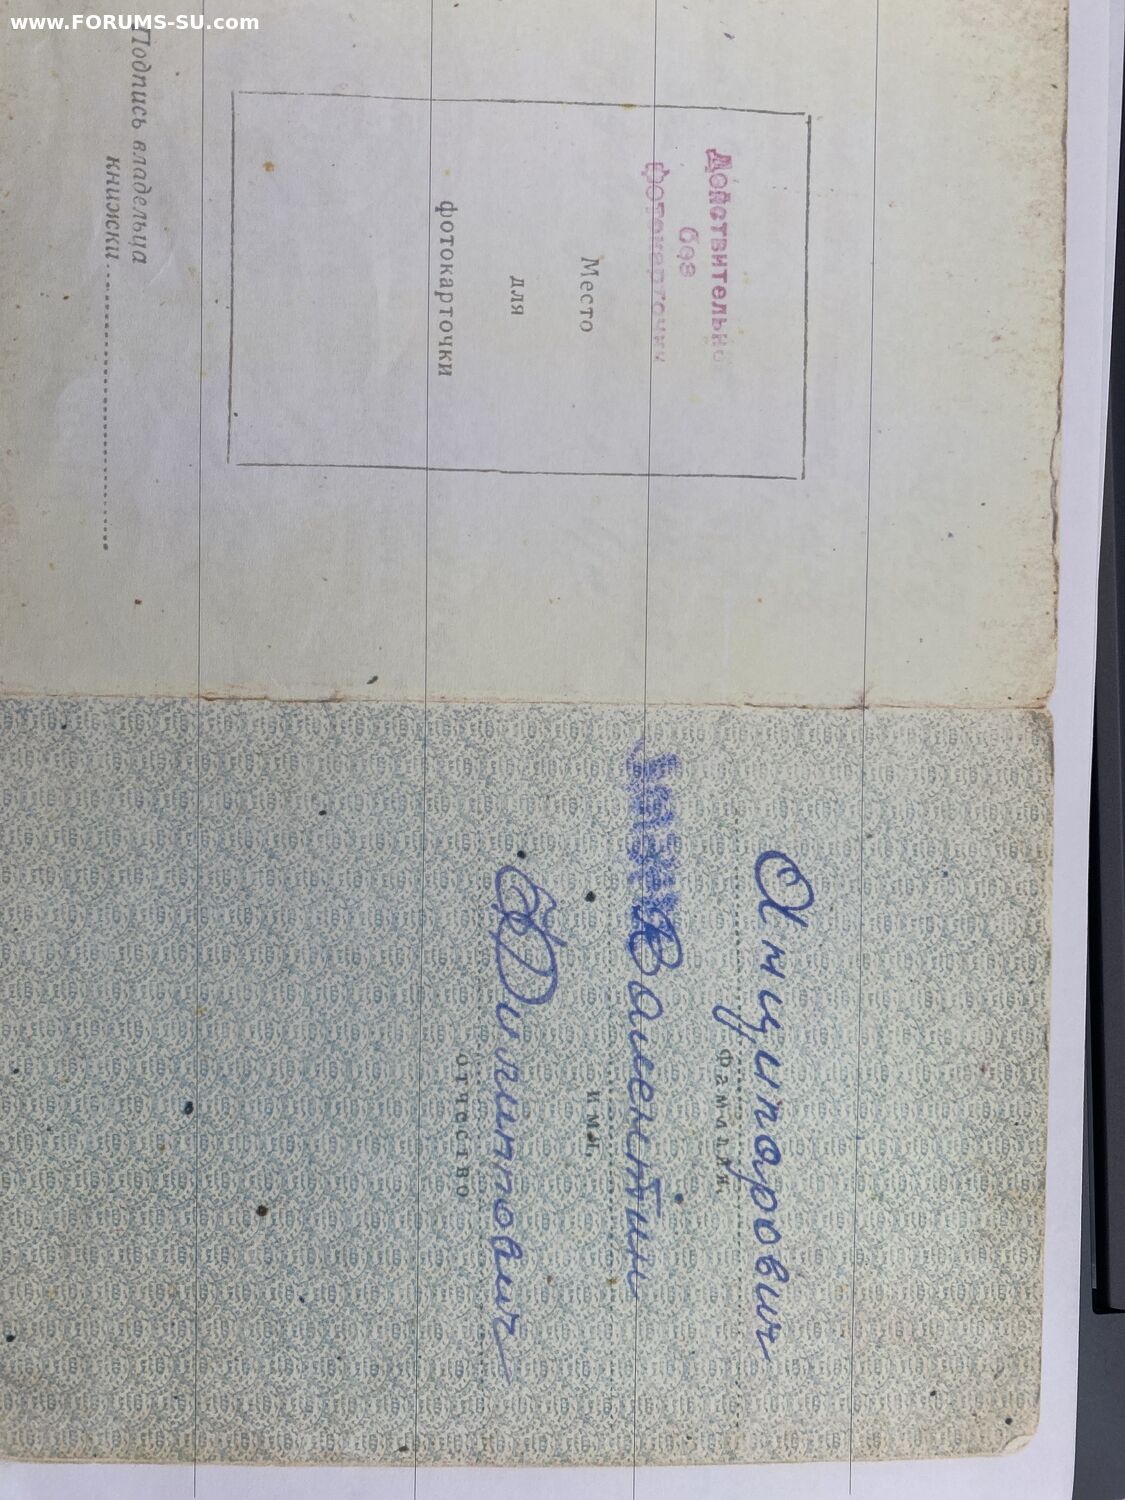 www.FORUMS-SU.com
Действительно
без
фотокарточки
Место
для
фотокарточки
Подпись владельца
книжки
фамилия
Валентин
имя
Филиппович
отчество